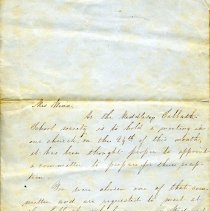 Miss Winn
As the Middleway Sabbath
School society is to hold a meeting in
our church, on the 29th of this month,
it has been thought proper to appoint
a committee to prepare for their
You were chosen one of that com
mittee and are requested to meet at